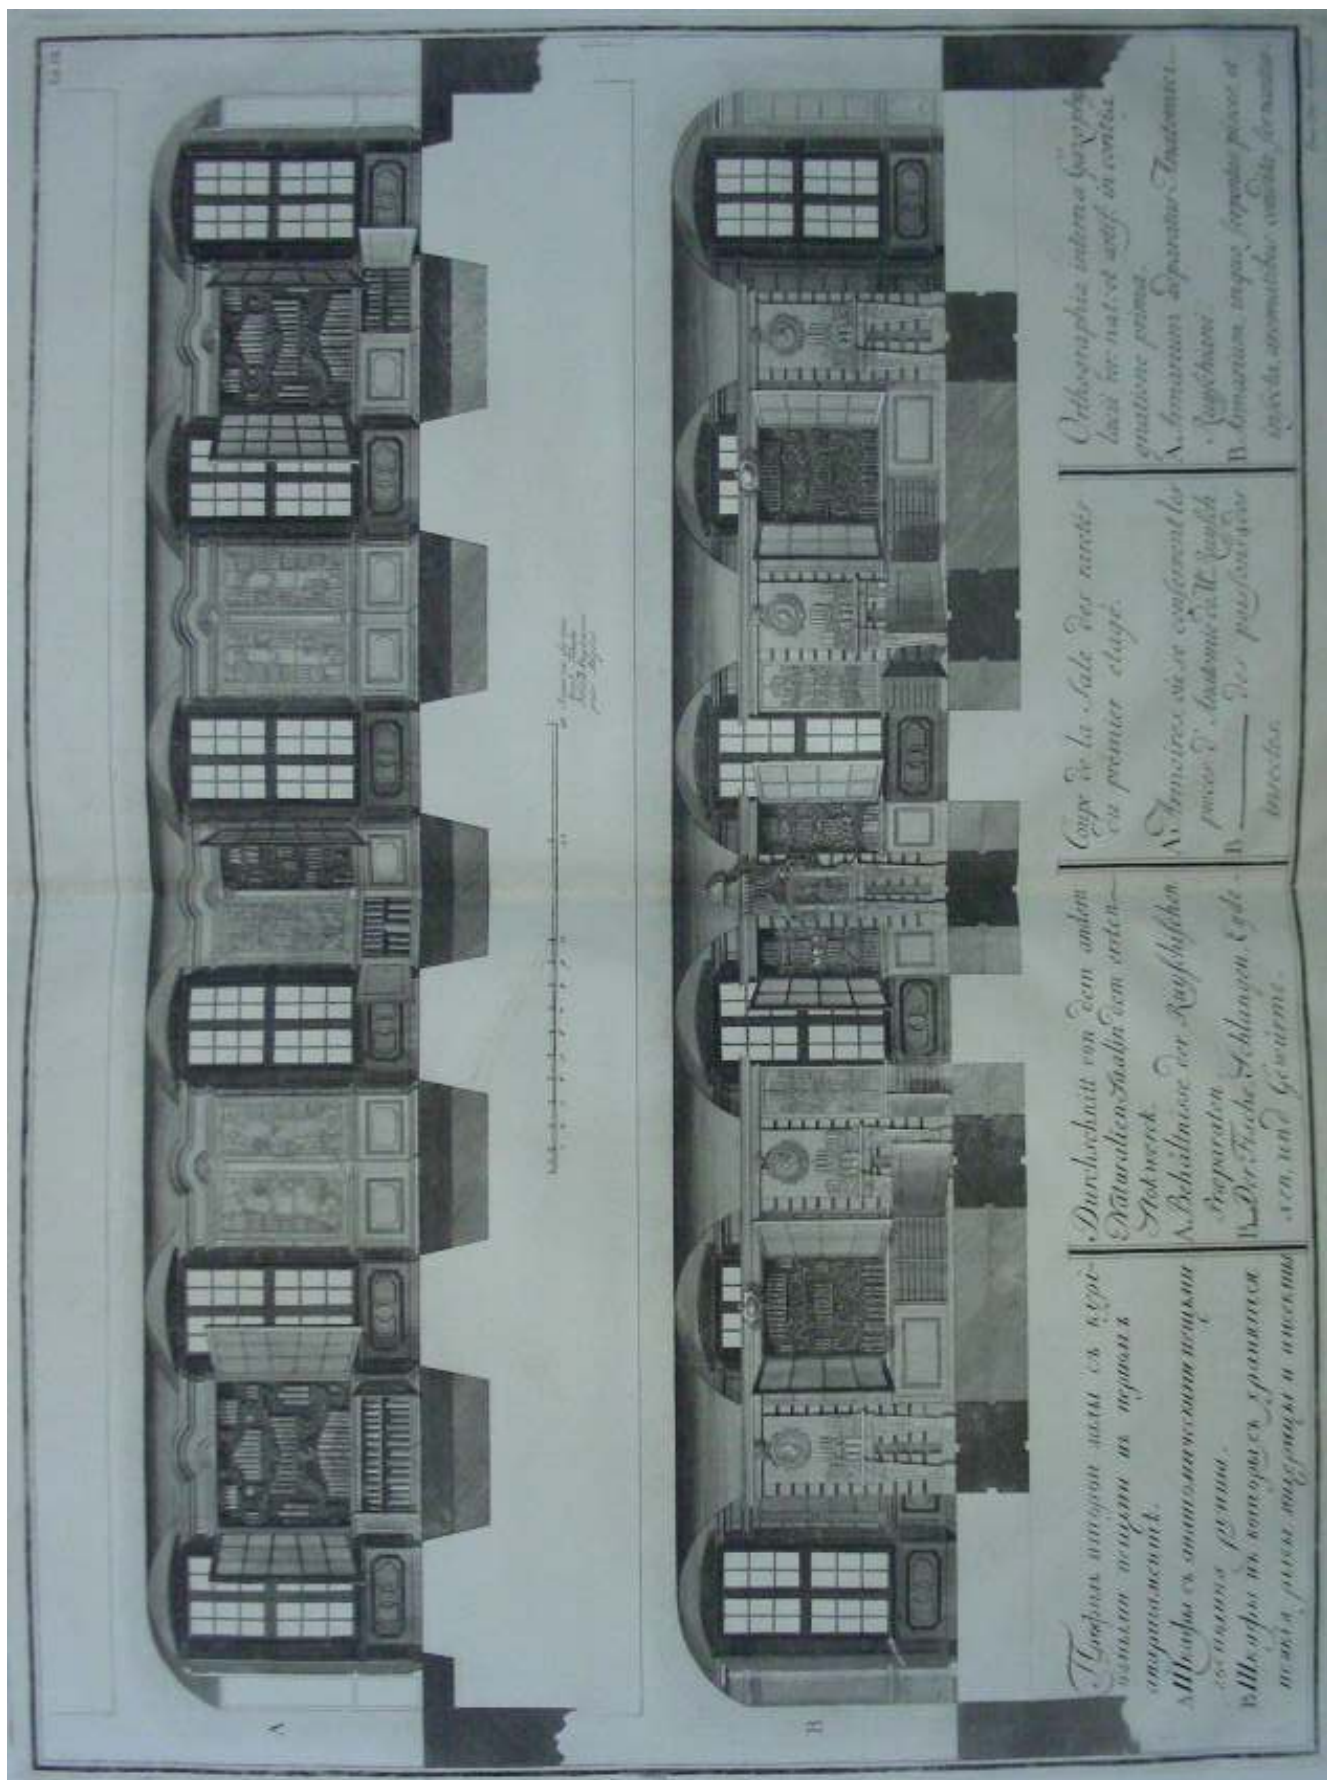 A
B
Профиль второй залы съ кури-
озными вещьми въ первомъ
апартаментѣ.
A Шкафы съ анатомическими вещьми
господина
B Шкафы въ которыхъ хранятся
рыбы ящерицы и инсекты
Durchschnitt von dem andern
Naturalien Saal in dem ersten
Stokwerck.
A Behältnisse der Ruyschischen
Praeparaten
B Der Fische Schlangen, Eyde-
xen, und Gewürme.
Coupe de la Sale des raretéz
au premier etage.
A Armoires où se conservent les
pieces d'Anatomie de Mr. Ruysch
B des poissons
insectes
Orthographia interna Gazophy-
lacii rer. nat. et artif. in conti-
gnatione prima.
A Armarium Apparatus Anatomici
Ruyschiani
B Armarium, serpentes pisces, et
insecta, aromatibus condita servantur.